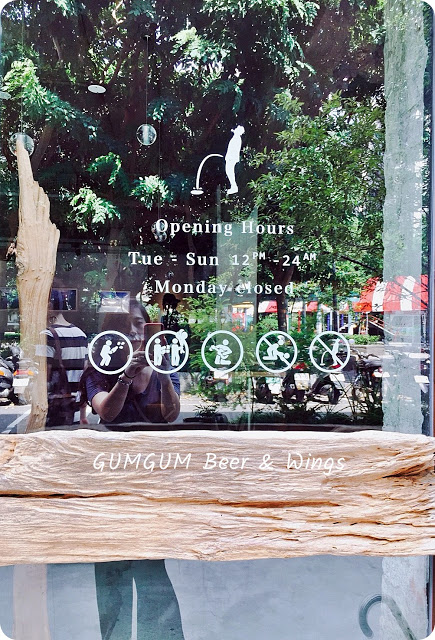 Opening Hours
Tue - Sun 12PM -24AM
Monday closed
GUMGUM Beer & Wings